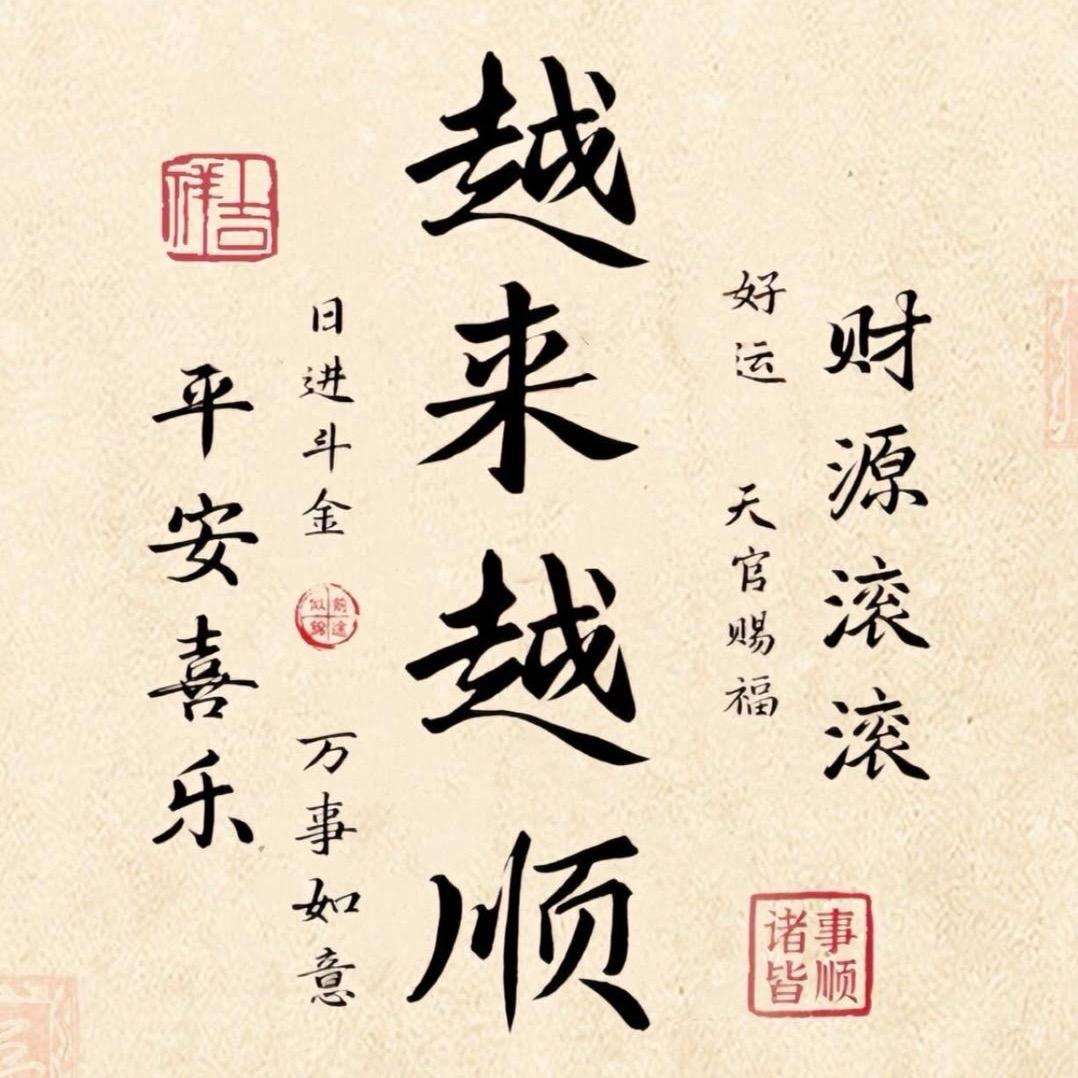 财源滚滚
好运 天官赐福
越来越顺
日进斗金 万事如意
平安喜乐
上吉祥
前途似锦
事顺诸皆